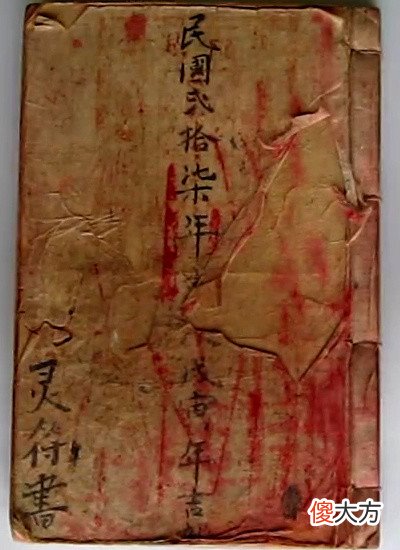 民國弍拾柒年戊寅年吉
灵符書
傻大方